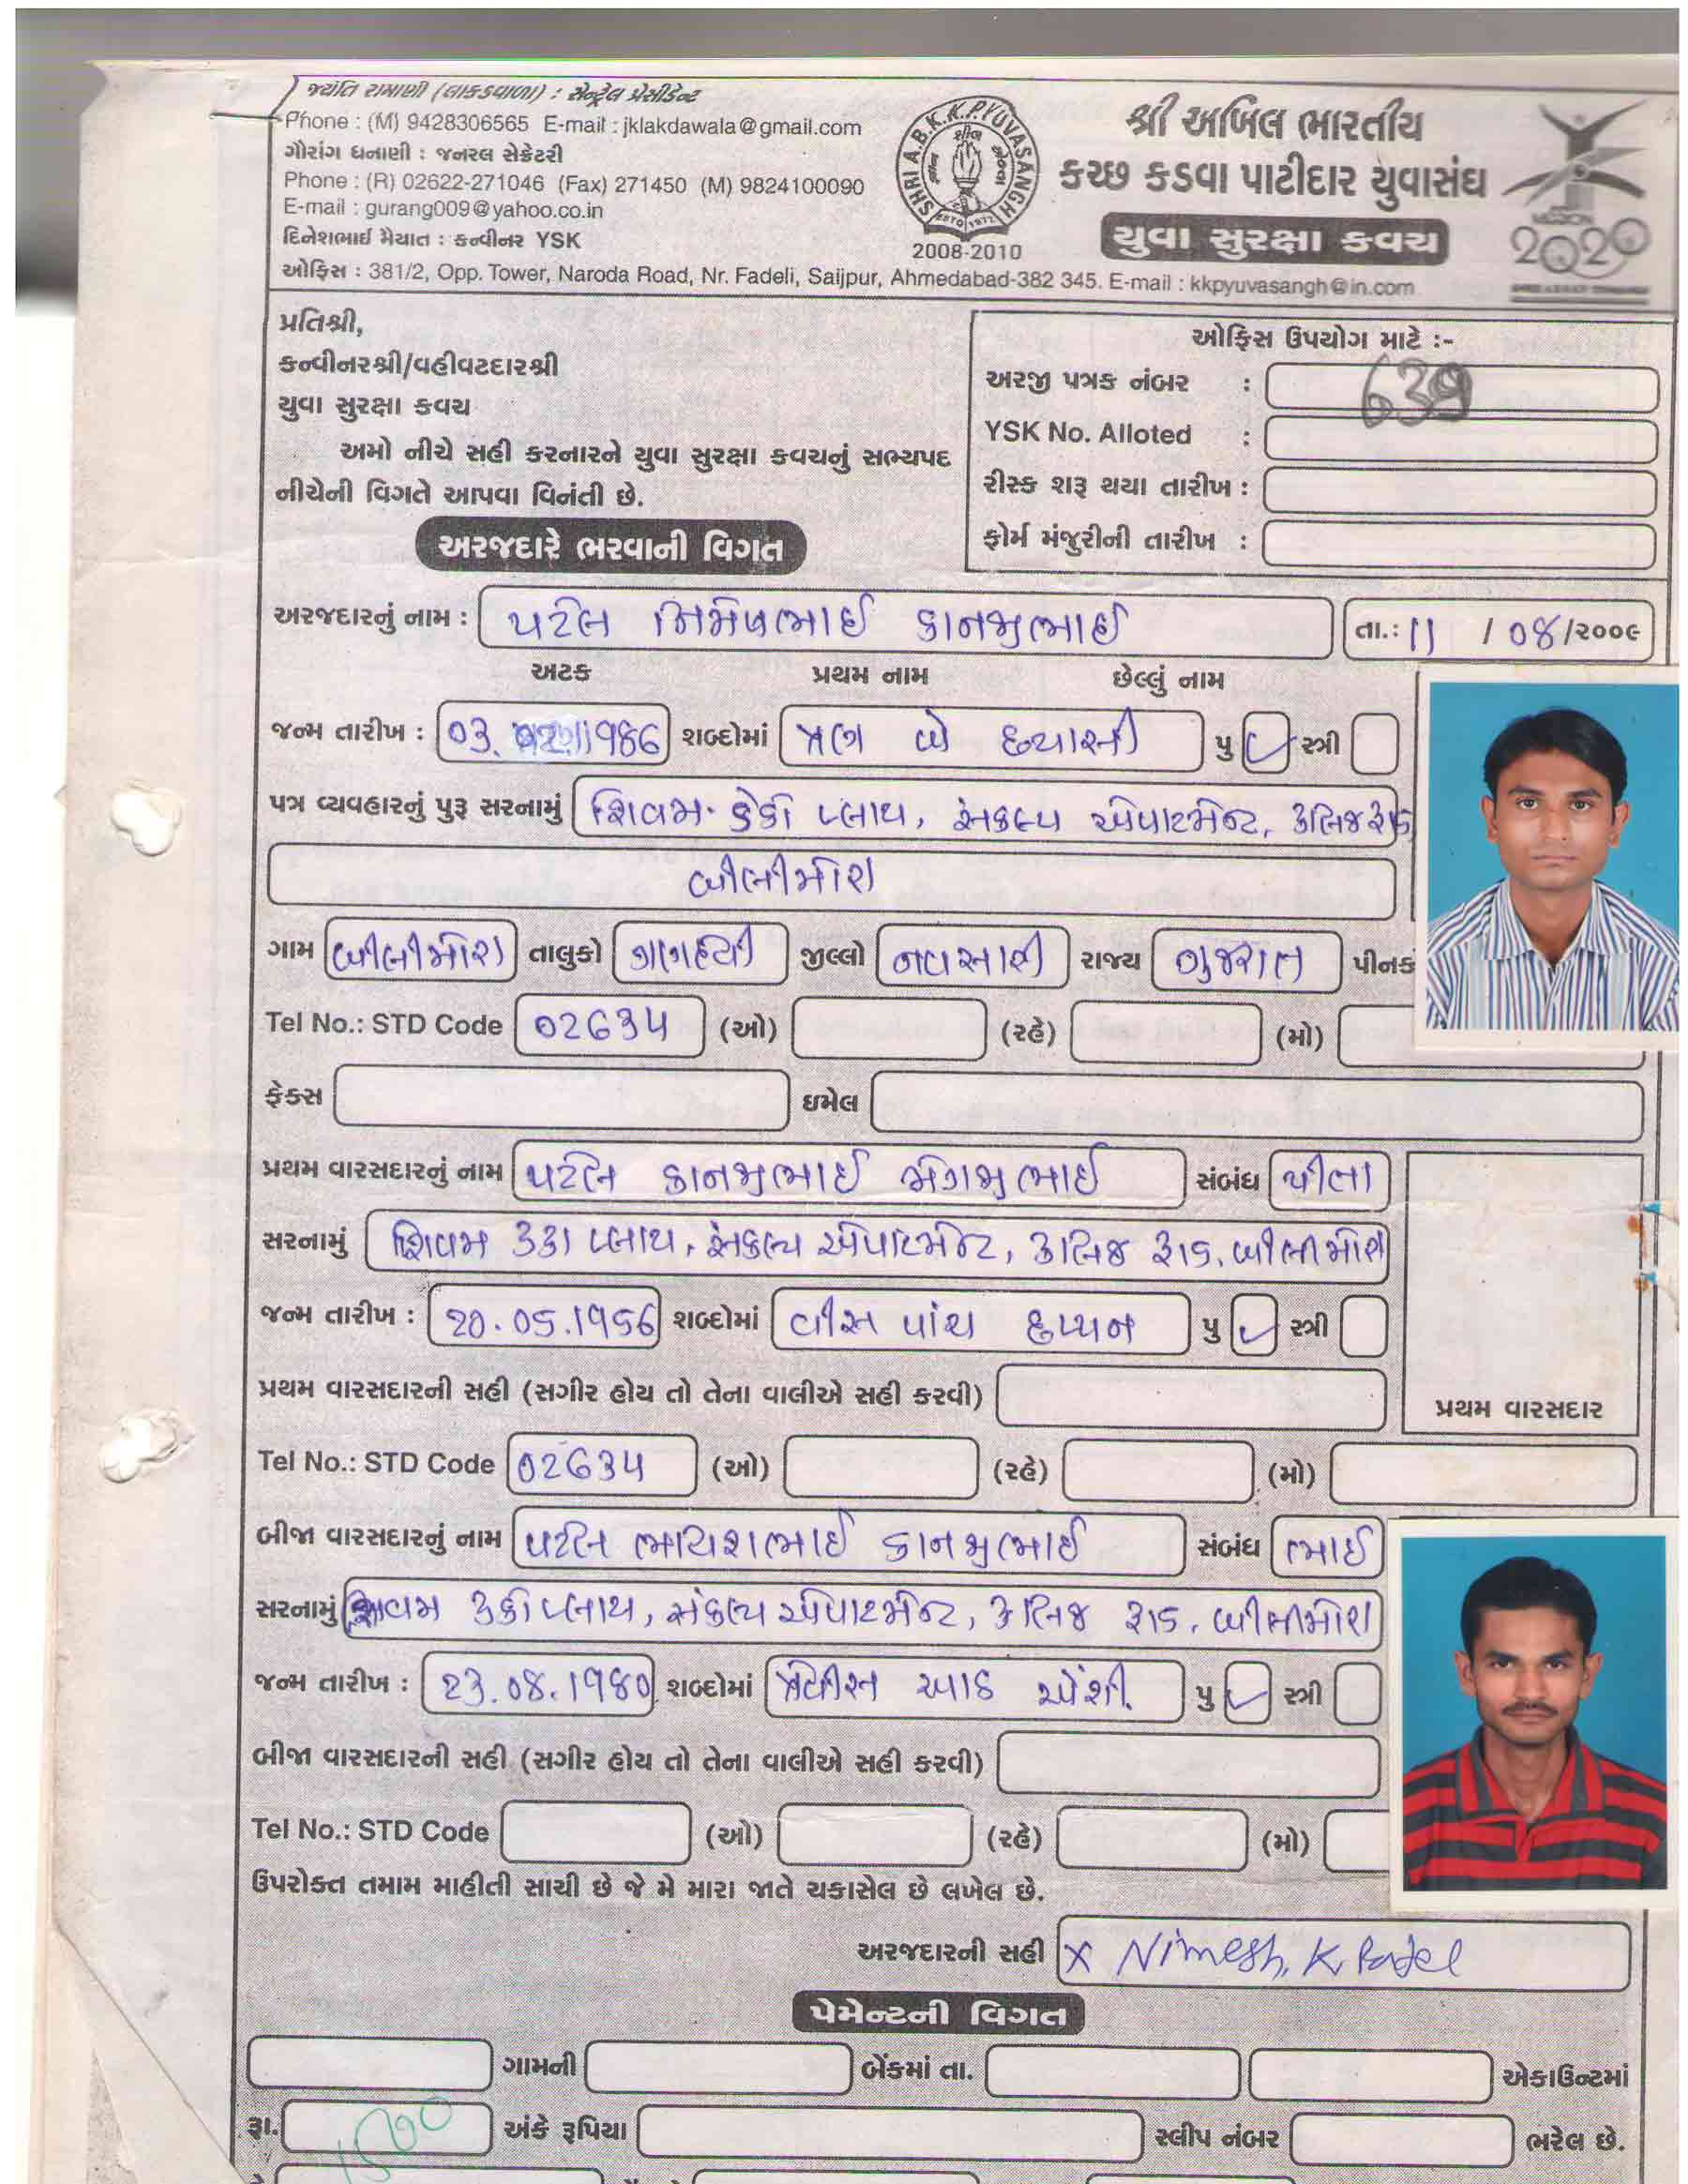 જયંતિ રામાણી (લાકડાવાળા) : સેન્ટ્રલ પ્રેસીડેન્ટ
Phone : (M) 9428306565 E-mail : jklakdawala@gmail.com
ગૌરાંગ ધનાણી : જનરલ સેક્રેટરી
Phone : (R) 02622-271046 (Fax) 271450 (M) 9824100090
E-mail : gurang009@yahoo.co.in
દિનેશભાઈ મૈયાત : કન્વીનર YSK
SHRI A.B.K.K.P.YUVASANGH
ESTD 1972
2008-2010
શ્રી અખિલ ભારતીય
કચ્છ કડવા પાટીદાર યુવાસંઘ
યુવા સુરક્ષા કવચ
MISSION
2020
ઓફિસ : 381/2, Opp. Tower, Naroda Road, Nr. Fadeli, Saijpur, Ahmedabad-382 345. E-mail : kkpyuvasangh@in.com
પ્રતિશ્રી,
કન્વીનરશ્રી/વહીવટદારશ્રી
યુવા સુરક્ષા કવચ
અમો નીચે સહી કરનારને યુવા સુરક્ષા કવચનું સભ્યપદ
નીચેની વિગતે આપવા વિનંતી છે.
ઓફિસ ઉપયોગ માટે :-
અરજી પત્રક નંબર : 639
YSK No. Alloted :
રીસ્ક શરૂ થયા તારીખ :
ફોર્મ મંજુરીની તારીખ :
અરજદારે ભરવાની વિગત
અરજદારનું નામ : પટેલ નિમેષભાઈ કાનજીભાઈ તા.: 11 / 08/૨૦૦૯
અટક પ્રથમ નામ છેલ્લું નામ
જન્મ તારીખ : 03. 02.1986 શબ્દોમાં ત્રણ બે છયાસી પુ સ્ત્રી
પત્ર વ્યવહારનું પુરૂ સરનામું શિવમ પ્લાય, સંકલ્પ એપાટમેન્ટ, કોલેજ રોડ
બીલીમોરા
ગામ બીલીમોરા તાલુકો ગણદેવી જીલ્લો નવસારી રાજ્ય ગુજરાત પીનકો
Tel No.: STD Code 02634 (ઓ) (રહે) (મો)
ફેક્સ ઇમેલ
પ્રથમ વારસદારનું નામ પટેલ કાનજીભાઈ ભાઈ સંબંધ પીતા
સરનામું શિવમ પ્લાય, સંકલ્પ એપાટમેન્ટ, કોલેજ રોડ, બીલીમોરા
જન્મ તારીખ : 20.05.1956 શબ્દોમાં વીસ પાંચ છપ્પન પુ સ્ત્રી
પ્રથમ વારસદારની સહી (સગીર હોય તો તેના વાલીએ સહી કરવી)
પ્રથમ વારસદાર
Tel No.: STD Code 02634 (ઓ) (રહે) (મો)
બીજા વારસદારનું નામ પટેલ ભાવેશભાઈ કાનજીભાઈ સંબંધ ભાઈ
સરનામું શિવમ પ્લાય, સંકલ્પ એપાટમેન્ટ, કોલેજ રોડ, બીલીમોરા
જન્મ તારીખ : 23.08.1980 શબ્દોમાં ત્રેવીસ આઠ એંશી. પુ સ્ત્રી
બીજા વારસદારની સહી (સગીર હોય તો તેના વાલીએ સહી કરવી)
Tel No.: STD Code (ઓ) (રહે) (મો)
ઉપરોક્ત તમામ માહીતી સાચી છે જે મે મારા જાતે ચકાસેલ છે લખેલ છે.
અરજદારની સહી X Nimesh. K. Patel
પેમેન્ટની વિગત
ગામની બેંકમાં તા. એકાઉન્ટમાં
રૂા. 1500 અંકે રૂપિયા સ્લીપ નંબર ભરેલ છે.